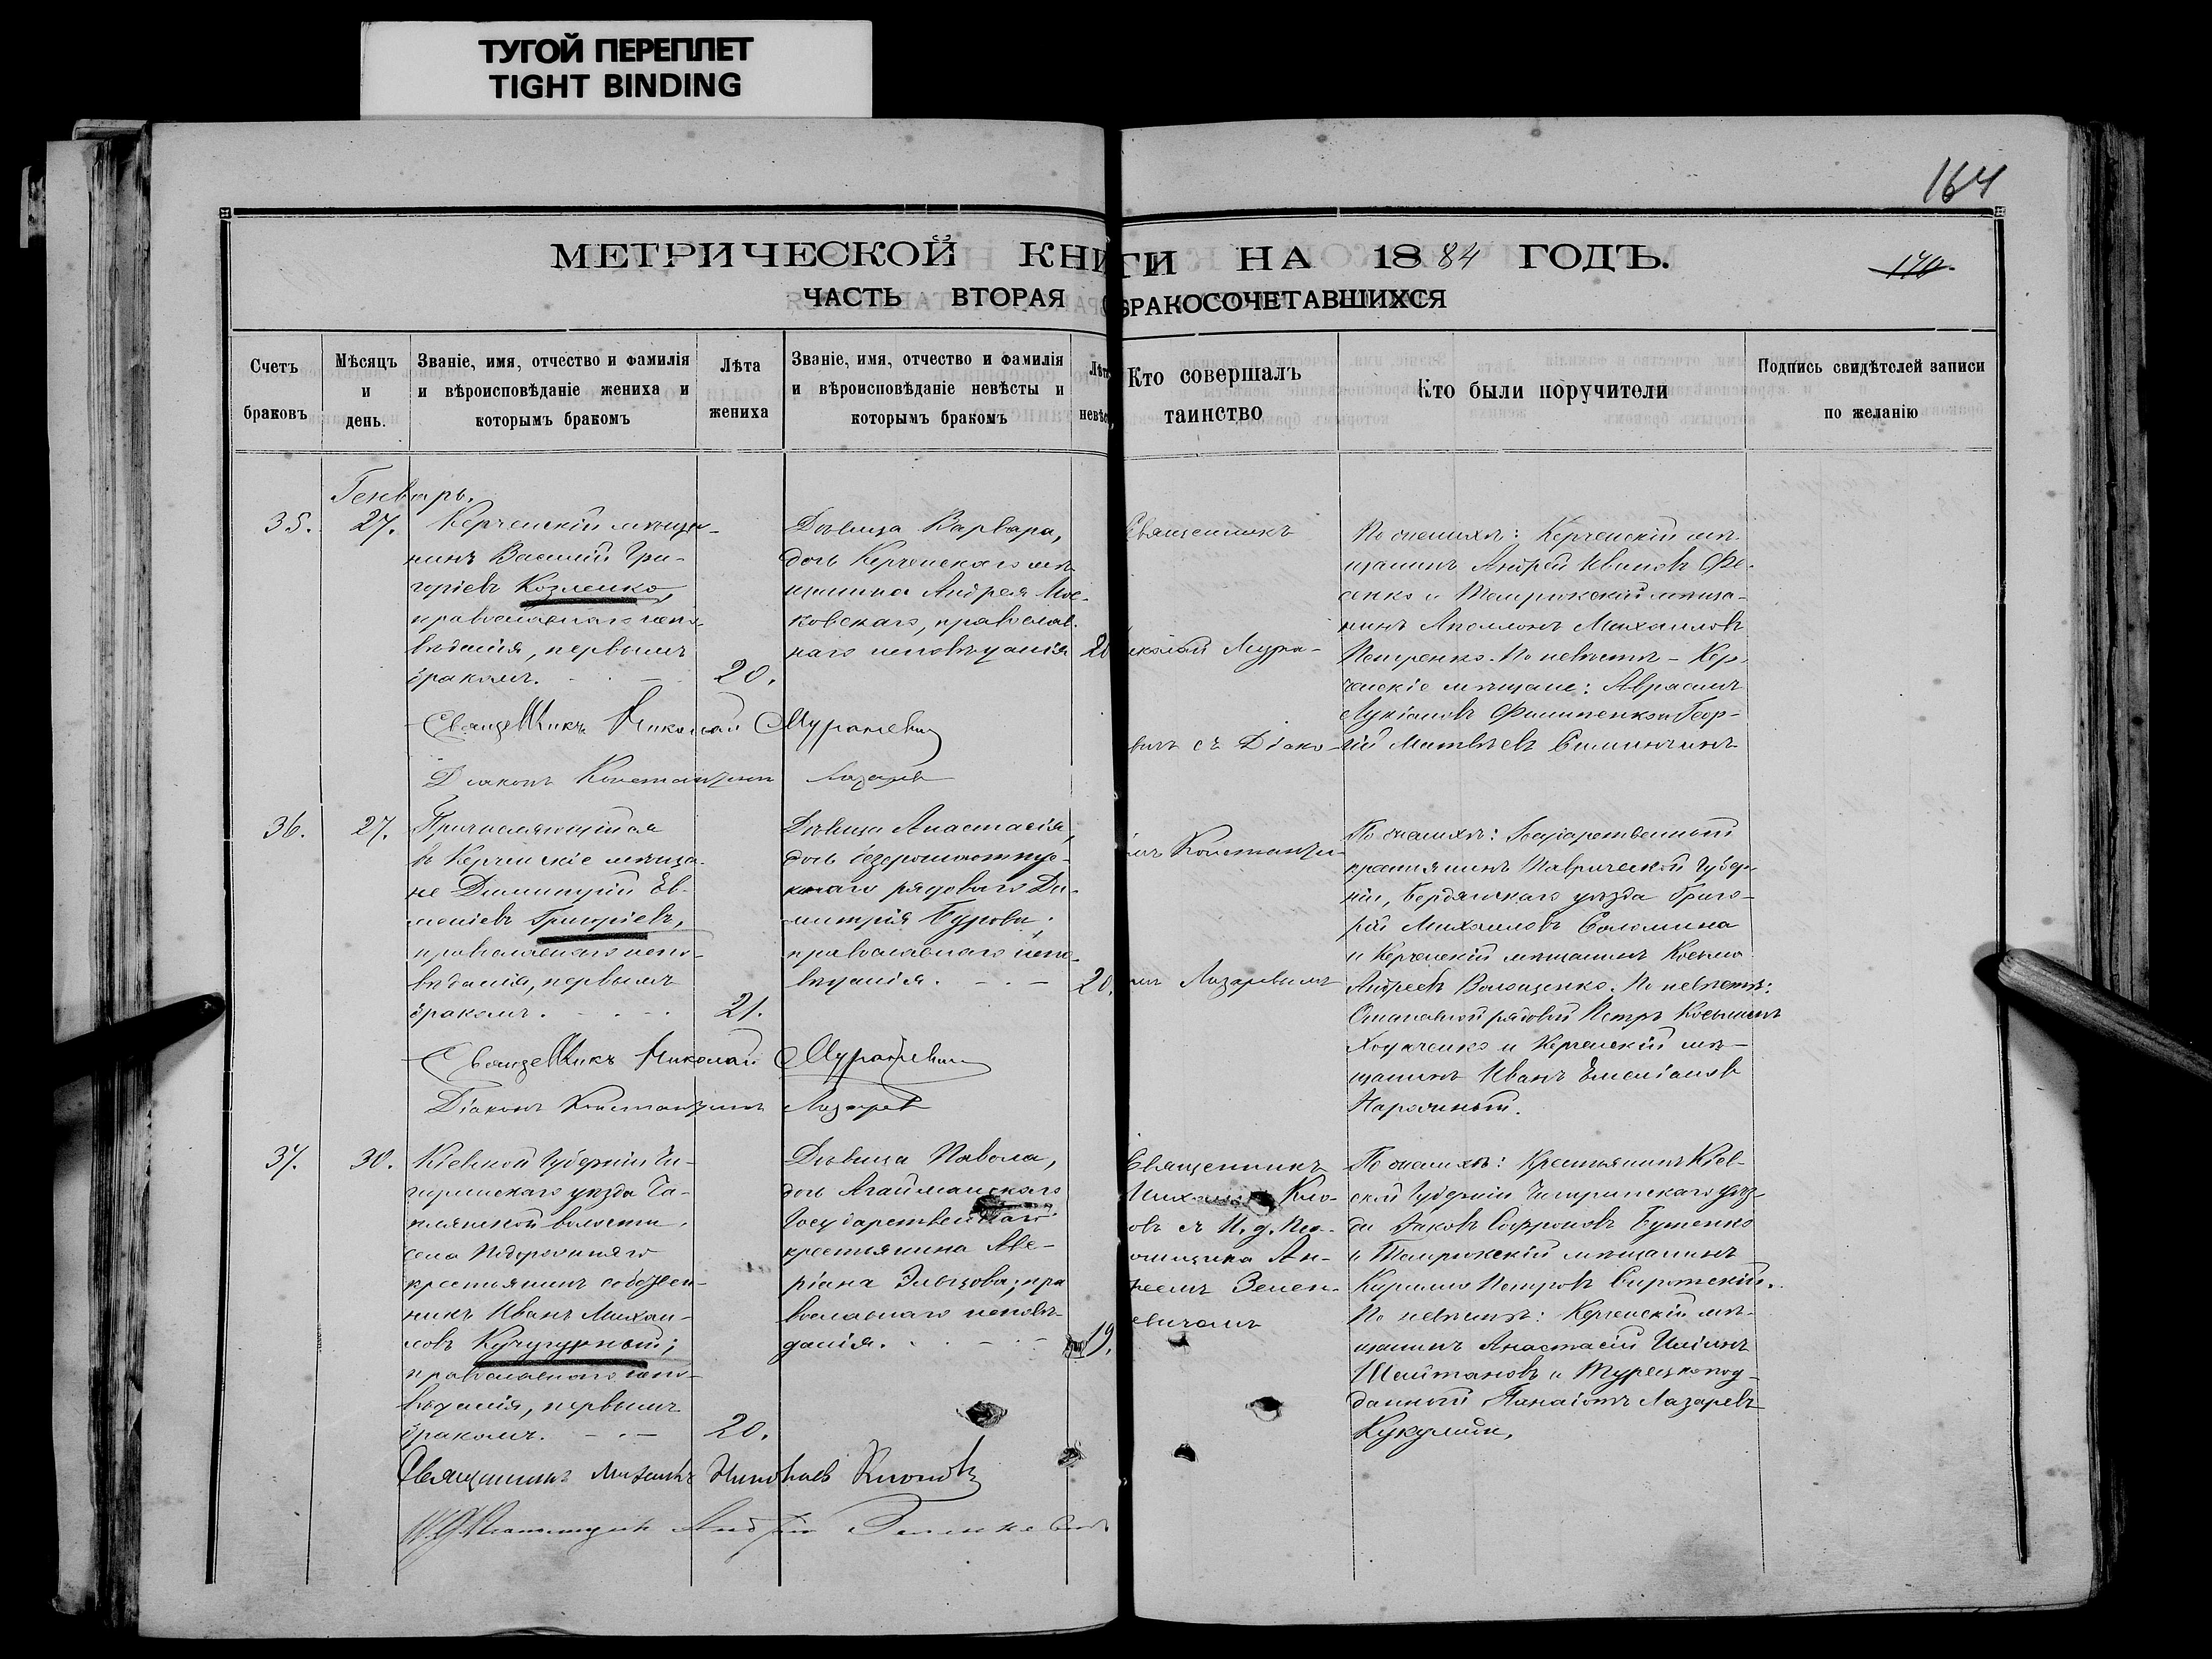 ТУГОЙ ПЕРЕПЛЕТ
TIGHT BINDING
164
МЕТРИЧЕСКОЙ КНИГИ НА 1884 ГОДЪ.
170.
ЧАСТЬ ВТОРАЯ О БРАКОСОЧЕТАВШИХСЯ
Счетъ браковъ
Мѣсяцъ и день.
Званіе, имя, отчество и фамилія и вѣроисповѣданіе жениха и которымъ бракомъ
Лѣта жениха
Званіе, имя, отчество и фамилія и вѣроисповѣданіе невѣсты и которымъ бракомъ
Лѣт невѣс
Кто совершалъ таинство
Кто были поручители
Подпись свидѣтелей записи по желанію
Генварь.
35.
27.
Керченскій мѣща-
нинъ Василій Гри-
горіевъ Козленко,
православнаго испо-
вѣданія, первымъ
бракомъ.
20.
Дѣвица Варвара,
дочь Керченскаго мѣ-
щанина Андрея Мос-
ковскаго, православ-
наго исповѣданія
20
Священникъ
иколай Мура-
вичъ съ Діако-
По женихѣ: Керченскій мѣ-
щанинъ Андрей Ивановъ Фе-
сенко и Темрюкскій мѣща-
нинъ Аполлонъ Михаиловъ
Петренко. По невѣстѣ - Кер-
ченскіе мѣщане: Авраамъ
Лукіановъ Филипенко и Геор-
гій Матвѣевъ
Священникъ Николай
Діаконъ Константинъ Лазарев
36.
27.
Причисляющійся
въ Керченскіе мѣща-
не Димитрій Ев-
меніевъ Григоріевъ,
православнаго испо-
вѣданія, первымъ
бракомъ.
21.
Дѣвица Анастасія,
дочь безсрочноотпус-
кнаго рядоваго Ди-
митрія Бурова,
православнаго испо-
вѣданія.
20.
мъ Константи-
мъ Лазаревымъ
По женихѣ: Государственный
крестьянинъ Таврической Губер-
ніи, Бердянскаго уѣзда Григо-
рій Михаиловъ Соломина
и Керченскій мѣщанинъ Косьма
Андреевъ Волощенко. По невѣстѣ:
Отставной рядовой Петръ Косьминъ
и Керченскій мѣ-
щанинъ Иванъ Емеліановъ
Священникъ Николай
Діаконъ Константинъ Лазарев
37.
30.
Кіевской Губерніи Чи-
гиринскаго уѣзда
волости,
села
крестьянинъ собствен-
никъ Иванъ Михаи-
ловъ Кучугурный;
православнаго испо-
вѣданія, первымъ
бракомъ.
20.
Дѣвица Павола,
дочь Агайманскаго
Государственнаго
крестьянина Аве-
ріана Эльцова, пра
вославнаго исповѣ-
данія.
19.
Священникъ
Михаилъ Кло-
овъ съ И. д. Пса-
омщика Ан-
реемъ Зелен-
евичемъ
По женихѣ: Крестьянинъ Кіев-
ской Губерніи Чигиринскаго уѣз-
да Яковъ Софроновъ Бутенко
и Темрюкскій мѣщанинъ
Кирилло Петровъ Сиротскій.
По невѣстѣ: Керченскій мѣ-
щанинъ Анастасій Иліинъ
Шайтановъ и Турецкопод-
данный Панаіотъ Лазаревъ
Кукулини.
Священникъ Михаилъ Николаевъ Клоповъ
И. д. Псаломщика Андрей